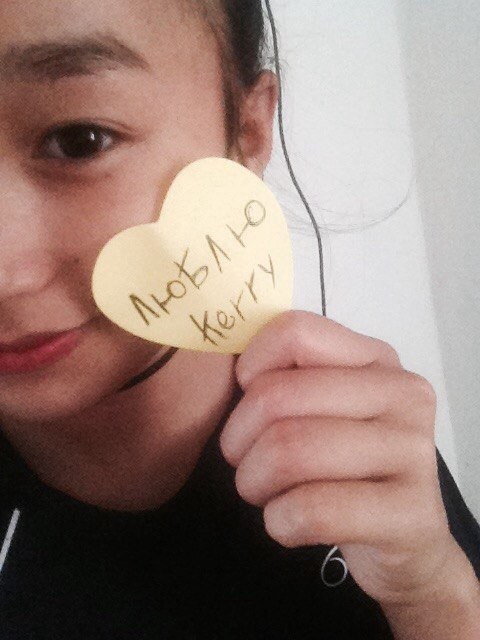 Люблю
Kerry